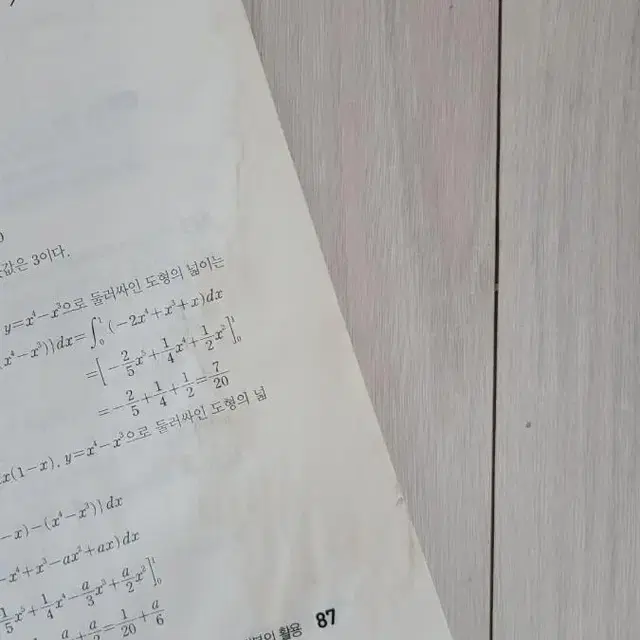 값은 3이다.
y=x⁴-x³으로 둘러싸인 도형의 넓이는
(x⁴-x³)}dx=∫₀¹(-2x⁴+x³+x)dx
=[-2/5x⁵+1/4x⁴+1/2x²]₀¹
=-2/5+1/4+1/2=7/20
x(1-x), y=x⁴-x³으로 둘러싸인 도형의 넓
-x)-(x⁴-x³)}dx
-x⁴+x³-ax²+ax)dx
1/5x⁵+1/4x⁴-a/3x³+a/2x²]₀¹
a/2=1/20+a/6
활용 87